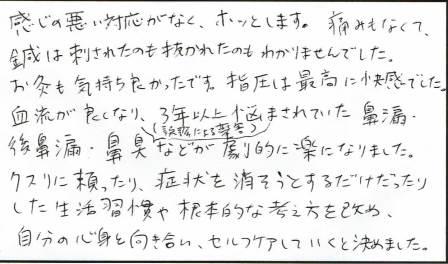 感じの悪い対応がなく、ホッとします。痛みもなくて、
鍼は刺されたのも抜かれたのもわかりませんでした。
お灸も気持ち良かったです。指圧は最高に快感でした。
血流が良くなり、3年以上悩まされていた鼻漏・
(誤嚥による薬害)
後鼻漏・鼻臭などが劇的に楽になりました。
クスリに頼ったり、症状を消そうとするだけだったり
した生活習慣や根本的な考え方を改め、
自分の心身と向き合い、セルフケアしていくと決めました。